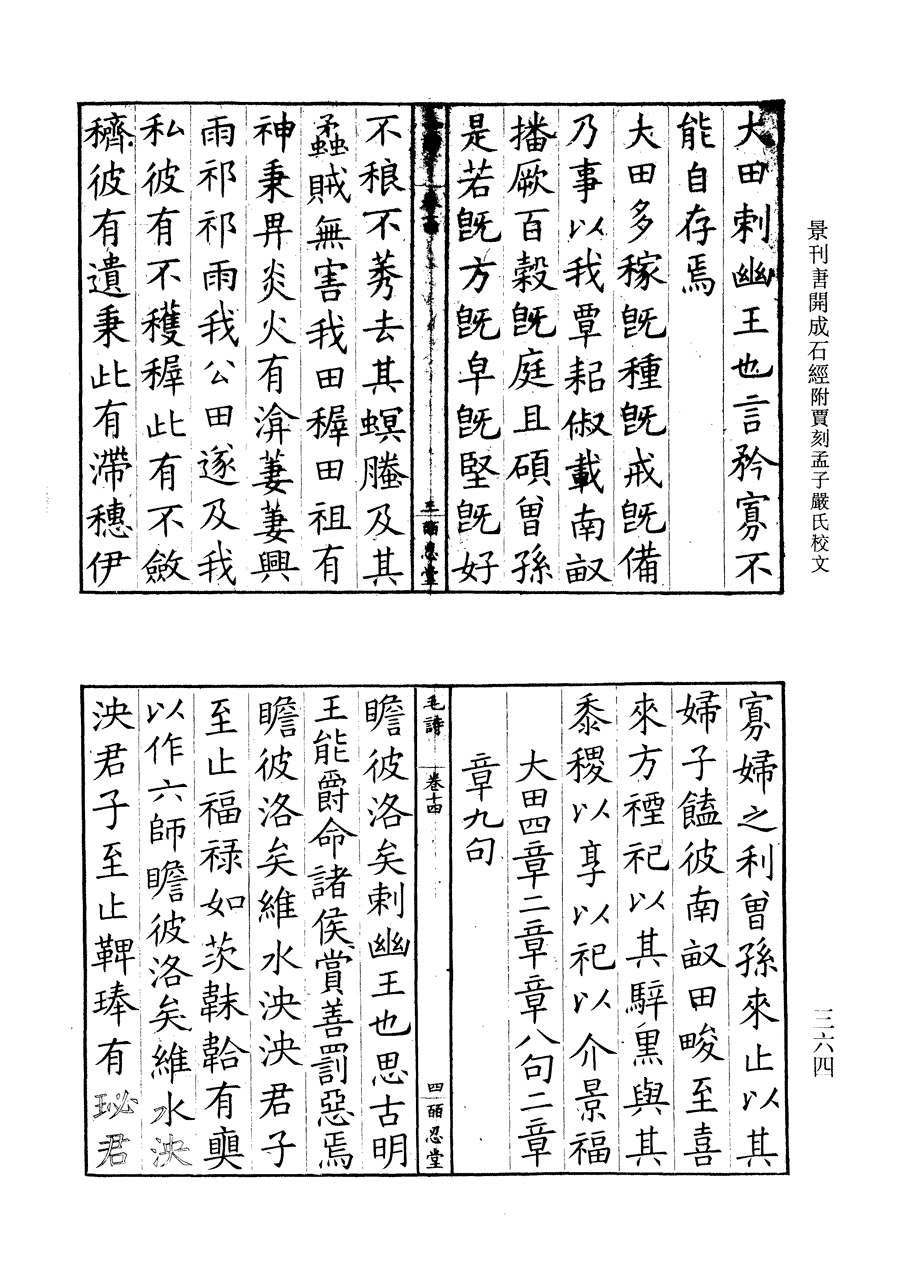 景刊唐開成石經附賈刻孟子嚴氏校文
三六四
大田刺幽王也言矜寡不
能自存焉
大田多稼旣種旣戒旣備
乃事以我覃耜俶載南畝
播厥百穀旣庭且碩曾孫
是若旣方旣皁旣堅旣好
三 皕忍堂
不稂不莠去其螟螣及其
蟊賊無害我田稺田祖有
神秉畀炎火有渰萋萋興
雨祁祁雨我公田遂及我
私彼有不穫稺此有不斂
穧彼有遺秉此有滯穗伊
寡婦之利曾孫來止以其
婦子饁彼南畝田畯至喜
來方禋祀以其騂黑與其
黍稷以享以祀以介景福
大田四章二章章八句二章
章九句
毛詩 卷十四 四 皕忍堂
瞻彼洛矣刺幽王也思古明
王能爵命諸侯賞善罰惡焉
瞻彼洛矣維水泱泱君子
至止福祿如茨韎韐有奭
以作六師瞻彼洛矣維水泱
泱君子至止鞞琫有珌君